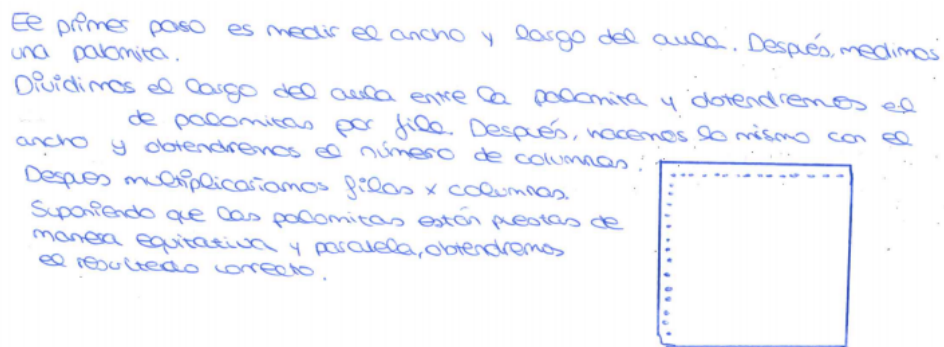 El primer paso es medir el ancho y largo del aula. Después, medimos
una palomita.
Dividimos el largo del aula entre la palomita y obtendremos el
de palomitas por fila. Después, hacemos lo mismo con el
ancho y obtendremos el número de columnas.
Despues multiplicaríamos filas x columnas.
Suponiendo que las palomitas están puestas de
manera equitativa y paralela, obtendremos
el resultado correcto.